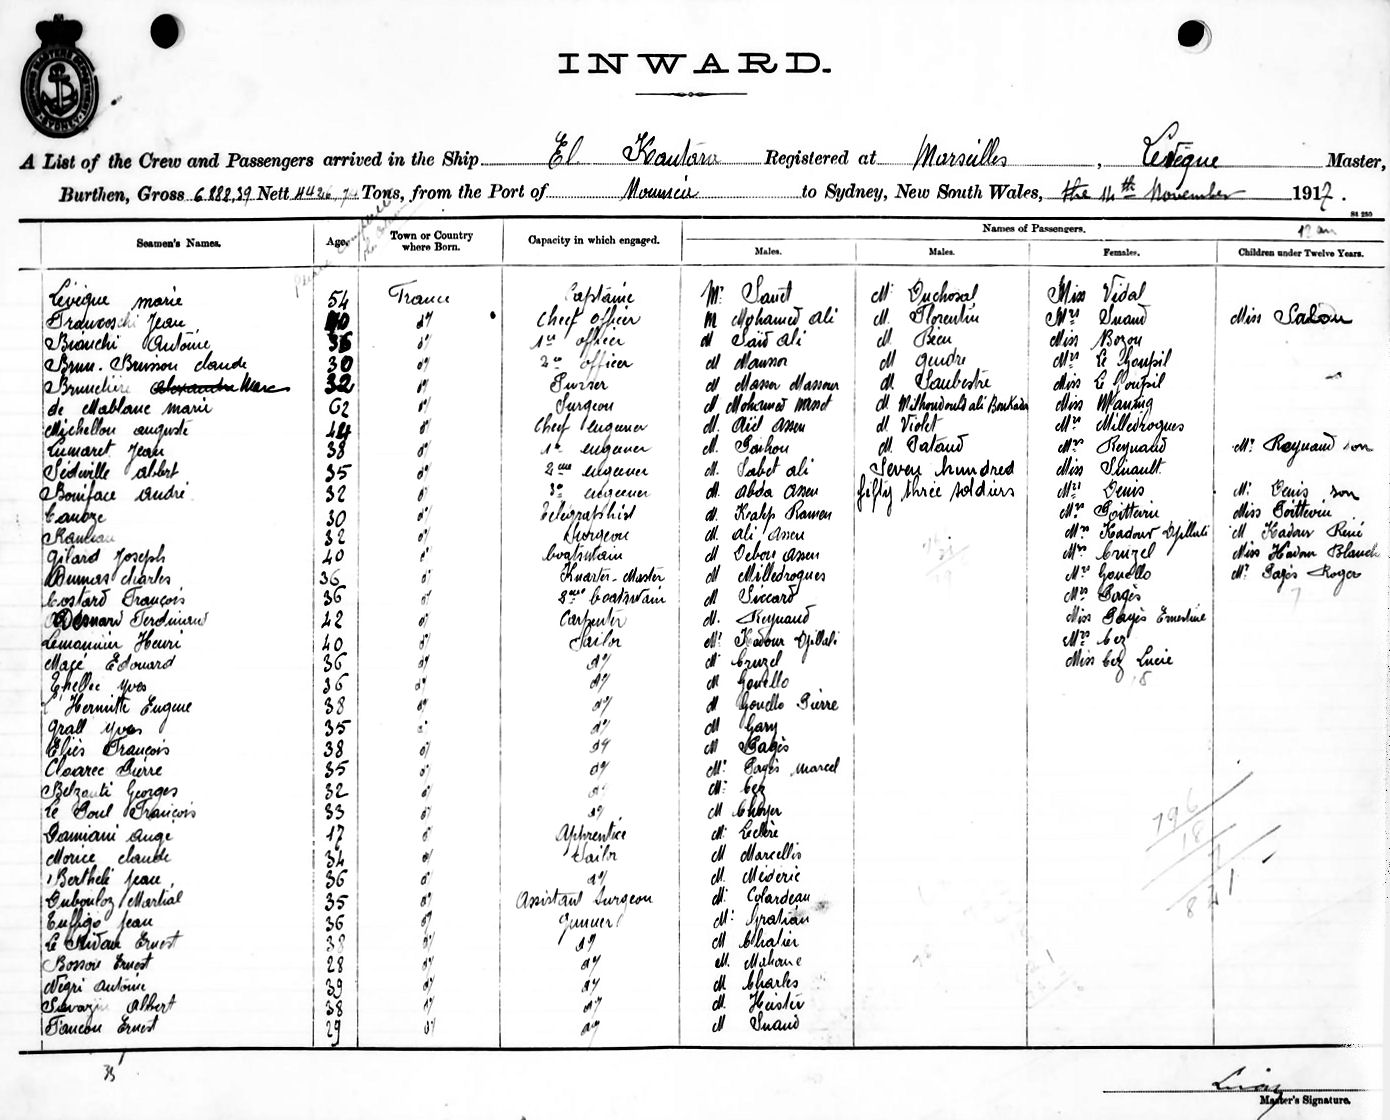 INWARD.
A List of the Crew and Passengers arrived in the Ship El Kantara Registered at Marseilles, Levèque Master,
Burthen, Gross 6882,39 Nett 4426,74 Tons, from the Port of Noumea to Sydney, New South Wales, the 14th November 1917.
S4 250
Seamen's Names. Age. Town or Country where Born. Capacity in which engaged. Names of Passengers.
Males. Males. Females. Children under Twelve Years.
Lévèque Marie 54 France Captaine Mr Sanct M. Duchosal Miss Vidal
Franceschi Jean 40 do Cheef officer M Mohamed Ali M. Florentin Mrs Suand Miss Salon
Bianchi Antoine 36 do 1er officer M Saïd Ali M. Bieu Miss Bozon
Brun-Buisson Claude 30 do 2me officer M Mansor M Gendre Mrs Le Goupil
Brunelière Alexandre Marc 32 do Purser M Massor Massour M Saubestre Miss Le Goupil
de Mablanc Marie 62 do Surgeon M Mohamed M. Miss Manning
Michellon Auguste 44 do Cheef engeneer M. Aïd Assen M Violet Mrs Milledrogues
Lumaret Jean 38 do 1er engeneer M. M. Pataud Mrs Reynaud Mr Reynaud son
Sédeville Albert 35 do 2me engeneer M. Sabet Ali Seven hundred Miss Suault
Boniface André 32 do 3e engeneer M. Abda Assen fifty three soldiers Mrs Denis Mr Denis son
30 do Telegraphist M. Kalep Ramen Mrs Poittevin Miss Poittevin
32 do Surgeon M. Ali Assen Mrs Kadour Djillali M Kadour René
Gilard Joseph 40 do Boatswain M Debou Assen Mrs Cruzel Miss Kadour Blanch
Dumas Charles 36 do Kuarter-Master M Milledrogues Mrs Gouello Mr Pagès Roger
Costard François 36 do 2me boatswain M Siccard Mrs Pagès
Ferdinand 42 do Carpenter M. Reynaud Miss Pagès Ernestine
Lemonnier Henri 40 do Sailor Mr Kadour Djillali Mrs Cez
Magé Edouard 36 do do M Cruzel Miss Cez Lucie
Ehellec Yves 36 do do M Gouello
L'Hermitte Eugene 38 do do M Gouello Pierre
Grall Yves 35 do do M Gary
Eliès François 38 do do M Pagès
Cloarec Pierre 35 do do Mr Pagès Marcel
Belzanti Georges 32 do do Mr Cez
Le Poul François 33 do do M Choyer
Damiani Ange 17 do Apprentice M. Leclère
Morice Claude 34 do Sailor M Marcellis
Berthelé Jean 36 do do M. Médéric
Dubouloz Martial 35 do Assistant Surgeon M. Colardeau
Tuffigo Jean 36 do Gunner Mr Gratian
Le Ernest 38 do do M Chalier
Bosson Ernest 28 do do M. Mahone
Négri Antoine 39 do do M Charles
Savazin Albert 38 do do M. Heister
Tancon Ernest 29 do do M Suand
796
18
7
821
35
Master's Signature.